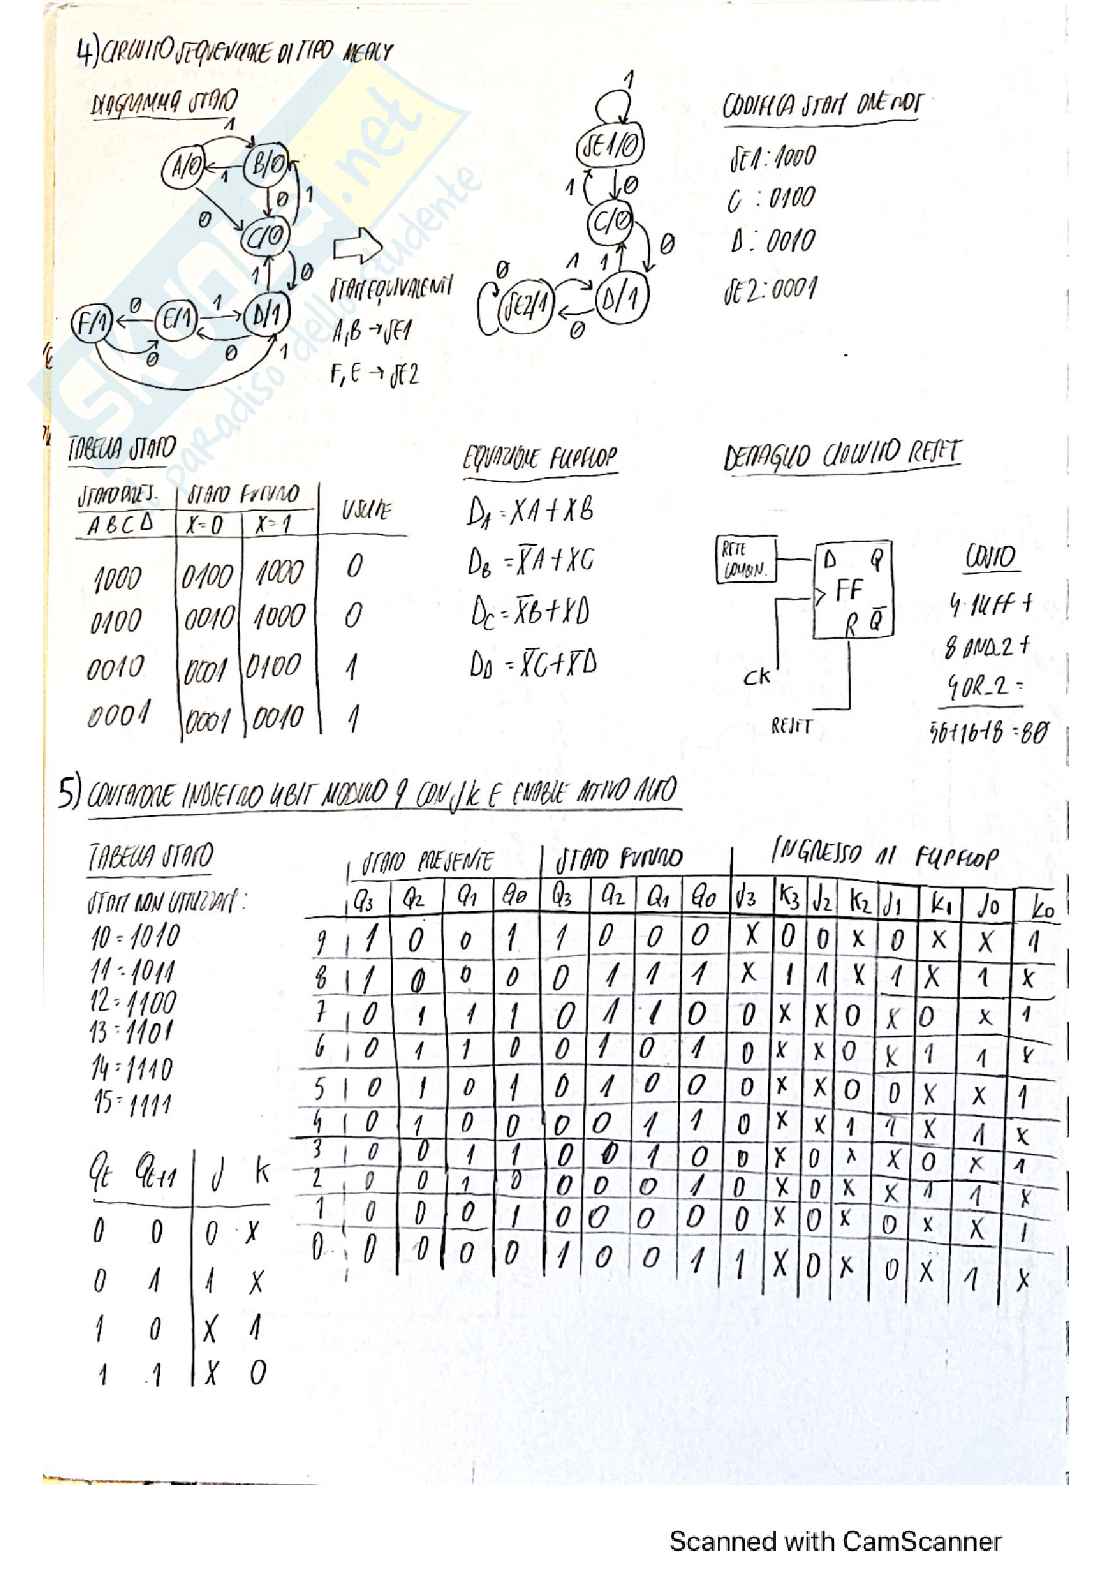 4) CIRCUITO SEQUENZIALE DI TIPO MEALY
DIAGRAMMA STATO
CODIFICA STATI ONE HOT
1
A/0 B/0
1
0 0 1
C/0
1 0
F/1 0 E/1 1 D/1
0 0 1
STATI EQUIVALENTI
A,B → SE1
F,E → SE2
1
SE1/0
1 0
C/0
0 1 1 0
SE2/1 D/1
0
SE1: 1000
C : 0100
D : 0010
SE2: 0001
SKUOLA.net
il paradiso dello studente
TABELLA STATO
STATO PRES. STATO FUTURO USCITE
A B C D X=0 X=1
1000 0100 1000 0
0100 0010 1000 0
0010 0001 0100 1
0001 0001 0010 1
EQUAZIONE FLIPFLOP
D_A = XA + XB
D_B = X̅A + XC
D_C = X̅B + XD
D_D = X̅C + X̅D
DETTAGLIO CIRCUITO RESET
RETE
COMBIN.
D Q
FF
R Q̅
CK
RESET
COSTO
4·14FF +
8 AND_2 +
4 OR_2 =
56+16+8 = 80
5) CONTATORE INDIETRO 4BIT MODULO 9 CON JK E ENABLE ATTIVO ALTO
TABELLA STATO
STATI NON UTILIZZATI :
10 = 1010
11 = 1011
12 = 1100
13 = 1101
14 = 1110
15 = 1111
Qt Qt+1 J K
0 0 0 X
0 1 1 X
1 0 X 1
1 1 X 0
STATO PRESENTE STATO FUTURO INGRESSO AI FLIPFLOP
Q3 Q2 Q1 Q0 Q3 Q2 Q1 Q0 J3 K3 J2 K2 J1 K1 J0 K0
9 1 0 0 1 1 0 0 0 X 0 0 X 0 X X 1
8 1 0 0 0 0 1 1 1 X 1 1 X 1 X 1 X
7 0 1 1 1 0 1 1 0 0 X X 0 X 0 X 1
6 0 1 1 0 0 1 0 1 0 X X 0 X 1 1 X
5 0 1 0 1 0 1 0 0 0 X X 0 0 X X 1
4 0 1 0 0 0 0 1 1 0 X X 1 1 X 1 X
3 0 0 1 1 0 0 1 0 0 X 0 X X 0 X 1
2 0 0 1 0 0 0 0 1 0 X 0 X X 1 1 X
1 0 0 0 1 0 0 0 0 0 X 0 X 0 X X 1
0 0 0 0 0 1 0 0 1 1 X 0 X 0 X 1 X
Scanned with CamScanner